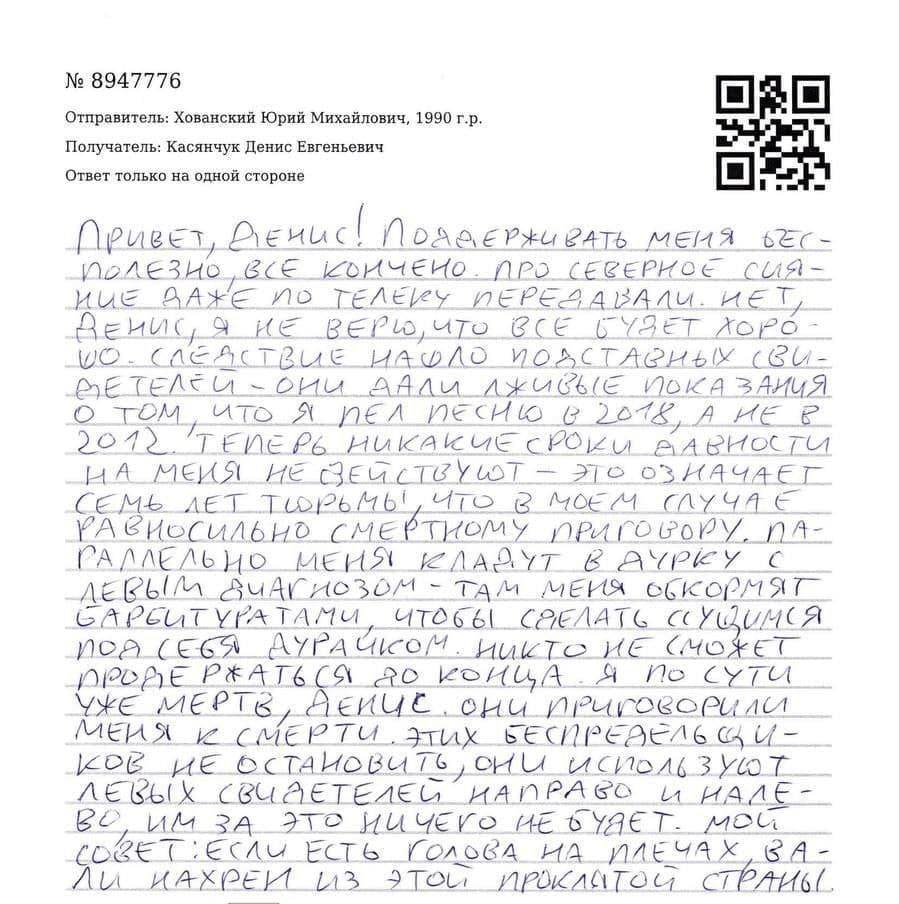 № 8947776
Отправитель: Хованский Юрий Михайлович, 1990 г.р.
Получатель: Касянчук Денис Евгеньевич
Ответ только на одной стороне
Привет, Денис! Поддерживать меня бес-
полезно, все кончено. Про северное сия-
ние даже по телеку передавали. Нет,
Денис, я не верю, что все будет хоро-
шо. Следствие нашло подставных сви-
детелей - они дали лживые показания
о том, что я пел песню в 2018, а не в
2012. Теперь никакие сроки давности
на меня не действуют - это означает
семь лет тюрьмы, что в моем случае
равносильно смертному приговору. Па-
раллельно меня кладут в дурку с
левым диагнозом - там меня обкормят
барбитуратами, чтобы сделать ссущимся
под себя дурачком. Никто не сможет
продержаться до конца. Я по сути
уже мертв, Денис. Они приговорили
меня к смерти. Этих беспредельщи-
ков не остановить, они используют
левых свидетелей направо и нале-
во, им за это ничего не будет. Мой
совет: если есть голова на плечах, ва-
ли нахрен из этой проклятой страны.